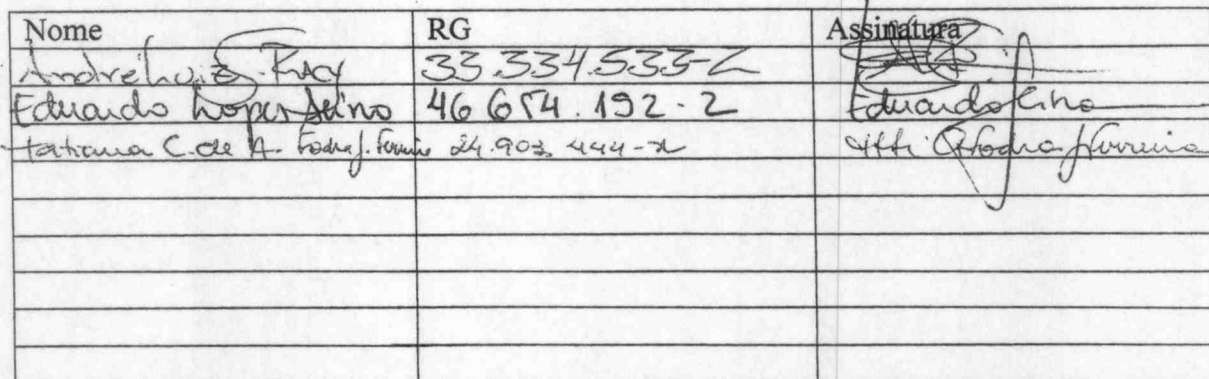 Nome RG Assinatura
André Luiz S. Racy 33.334.533-2
Eduardo Lopes Lino 46 654.192-2 Eduardo Lino
Tatiana C. de A. 24.903 444-x Ferreira